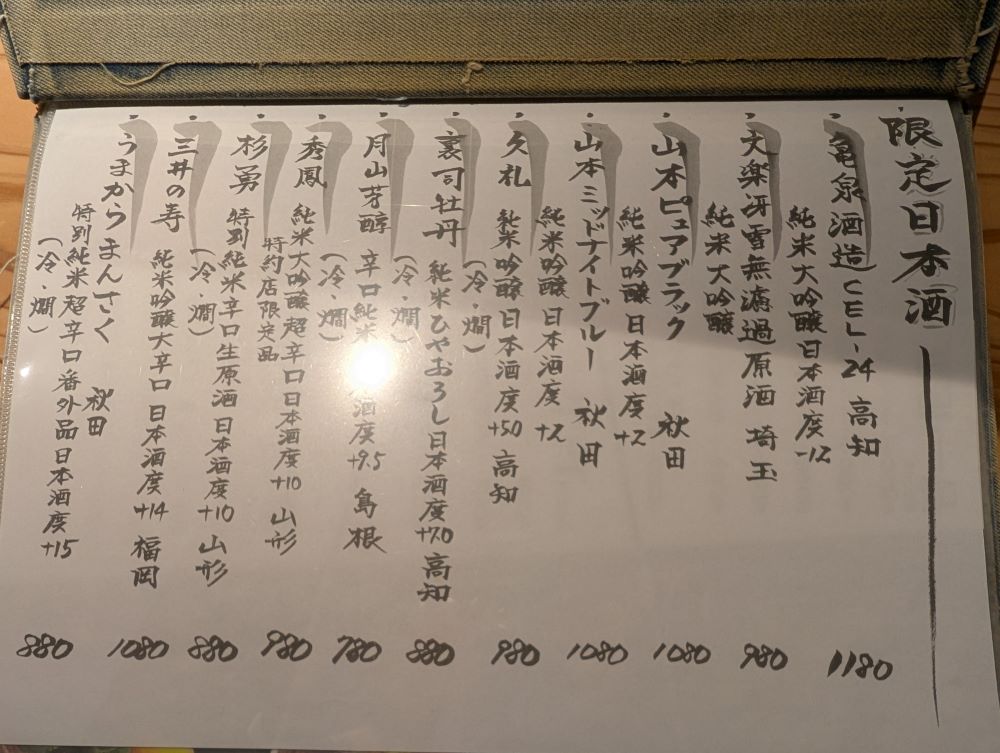 限定日本酒
亀泉酒造CEL-24 高知
純米大吟醸 日本酒度-12
1180
天楽冴雪無濾過原酒 埼玉
純米大吟醸
980
山本ピュアブラック 秋田
純米吟醸 日本酒度+2
1080
山本ミッドナイトブルー 秋田
純米吟醸 日本酒度+2
1080
久礼 純米吟醸 日本酒度+50 高知
(冷・燗)
980
裏司牡丹 純米ひやおろし 日本酒度+70 高知
(冷・燗)
880
月山芳醇 辛口純米 酒度+9.5 島根
(冷・燗)
780
秀鳳 純米大吟醸超辛口 日本酒度+10 山形
特約店限定品
980
杉勇 特別純米辛口生原酒 日本酒度+10 山形
(冷・燗)
880
三井の寿 純米吟醸大辛口 日本酒度+14 福岡
1080
うまからまんさく 秋田
特別純米超辛口番外品 日本酒度+15
(冷・燗)
880